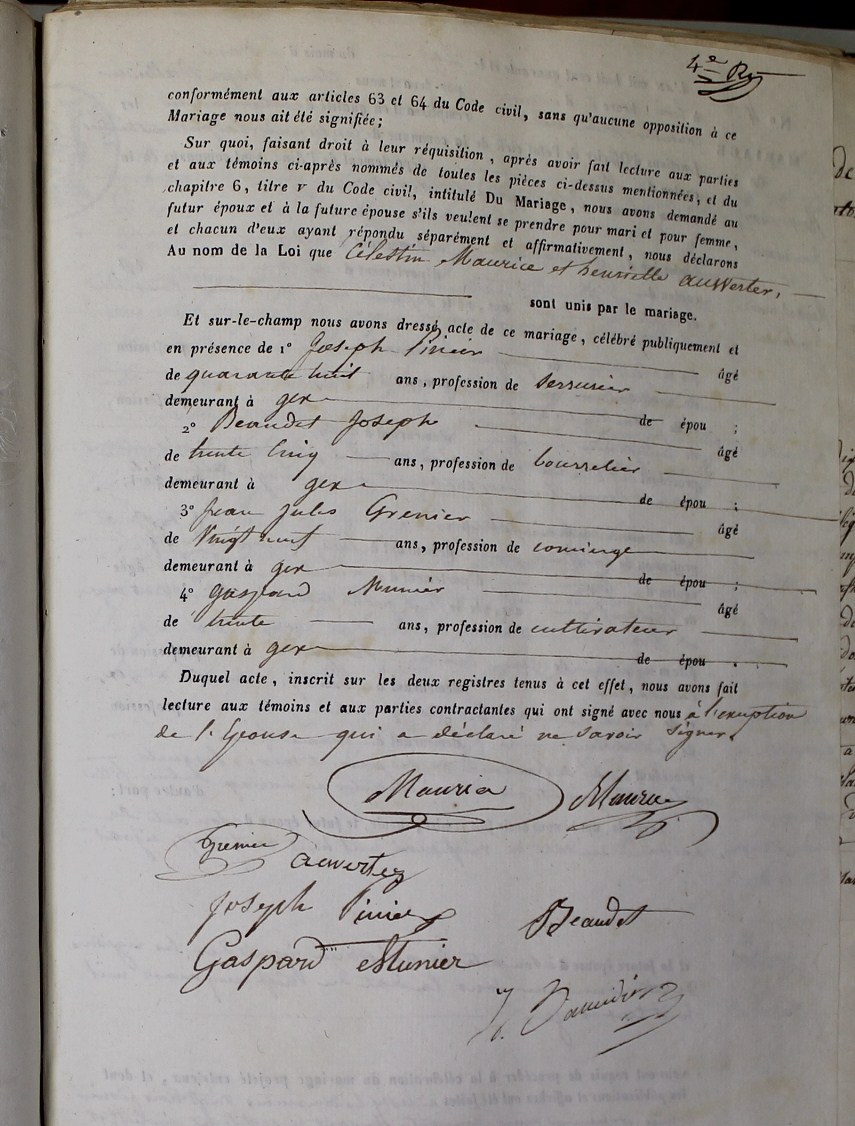 4e Rt
conformément aux articles 63 et 64 du Code civil, sans qu'aucune opposition à ce
Mariage nous ait été signifiée;
Sur quoi, faisant droit à leur réquisition, après avoir fait lecture aux parties
et aux témoins ci-après nommés de toutes les pièces ci-dessus mentionnées, et du
chapitre 6, titre v du Code civil, intitulé Du Mariage, nous avons demandé au
futur époux et à la future épouse s'ils veulent se prendre pour mari et pour femme,
et chacun d'eux ayant répondu séparément et affirmativement, nous déclarons
Au nom de la Loi que Célestin Maurice et henriette auwerter,
sont unis par le mariage.
Et sur-le-champ nous avons dressé acte de ce mariage, célébré publiquement et
en présence de 1° Joseph Pinier âgé
de quarante huit ans, profession de serrurier
demeurant à gex de épou ;
2° Beaudet Joseph âgé
de trente cinq ans, profession de bourrelier
demeurant à gex de épou ;
3° Jean Jules Grenier âgé
de Vingt neuf ans, profession de concierge
demeurant à gex de épou ;
4° gaspard Munier âgé
de trente ans, profession de cultivateur
demeurant à gex de épou .
Duquel acte, inscrit sur les deux registres tenus à cet effet, nous avons fait
lecture aux témoins et aux parties contractantes qui ont signé avec nous à l'exeption
de l'Epouse qui a déclaré ne savoir signer.
Maurice Maurice
Grenier auverter
Joseph Pinier Beaudet
Gaspard Munier